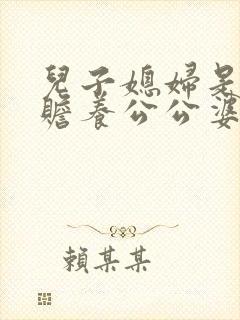 兒子媳婦是
贍養公公婆
賴某某